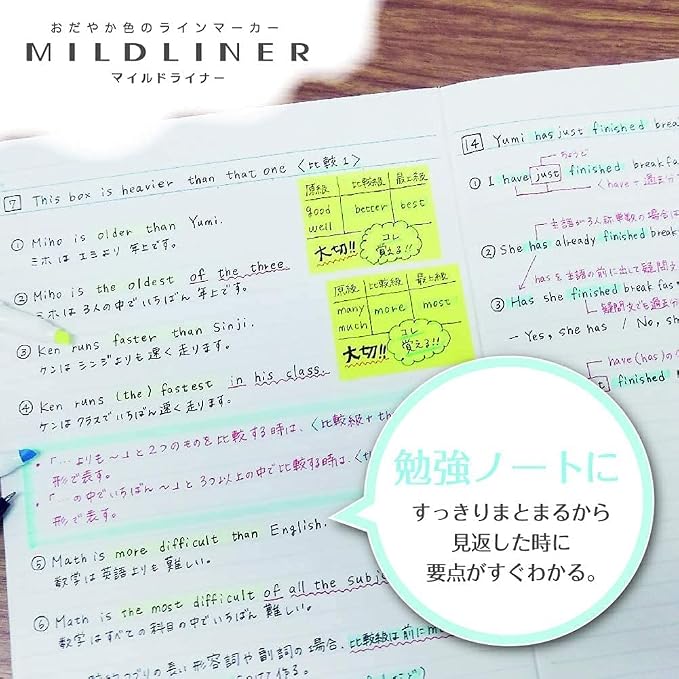 おだやか色のラインマーカー
MILDLINER
マイルドライナー
7 This box is heavier than that one 〈比較1〉
① Miho is older than Yumi.
ミホは ユミより 年上です。
② Miho is the oldest of the three.
ミホは 3人の中でいちばん 年上です。
③ Ken runs faster than Sinji.
ケンは シンジよりも 速く 走ります。
④ Ken runs (the) fastest in his class.
ケンは クラスでいちばん 速く 走ります。
・「…よりも〜」と2つのものを比較する時は、〈比較級+th
形で表す。
・「…の中でいちばん〜」と3つ以上の中で比較する時は、〈th
形で表す。
⑤ Math is more difficult than English.
数学は 英語よりも 難しい。
⑥ Math is the most difficult of all the subj
数学は すべての 科目の中でいちばん 難しい。
の長い形容詞や副詞の場合、比較級は前にm
作る。
原級 比較級 最上級
good better best
well
大切!! コレ
覚える!!
原級 比較級 最上級
many more most
much
大切!! コレ
覚える!!
14 Yumi has just finished brea
ちょうど
① I have just finished breakfa
〈have+過去分
主語が3人称単数の場合は
② She has already finished break
hasを主語の前に出して疑問文
③ Has she finished breakfas
疑問文でも過去分
– Yes, she has / No, sh
have(has)の
finished
勉強ノートに
すっきりまとまるから
見返した時に
要点がすぐわかる。